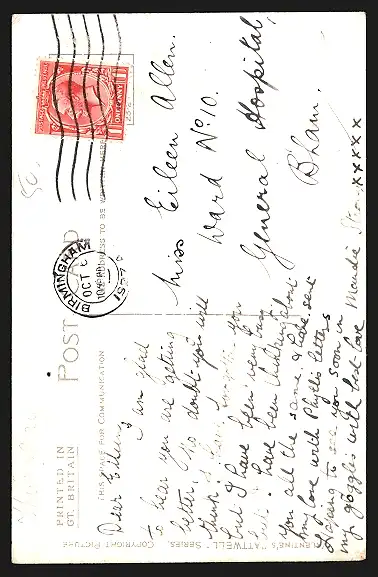 POST CARD
THIS SPACE FOR COMMUNICATION
ADDRESS TO BE WRITTEN HERE
PRINTED IN
GT. BRITAIN
VALENTINE'S "ATTWELL" SERIES,
COPYRIGHT PICTURE
ONE PENNY
BIRMINGHAM
OCT
1927
Miss Eileen Allen.
Ward No 10.
General Hospital,
B'ham.
Dear Eileen, I am glad
to hear you are getting
better. No doubt you will
think I have you
but I have been very busy
but I have been thinking about
you all the same. I have sent
my love with Phyllis letters
Hoping to see you soon in
my goggles with best love Maudie
xxxxx